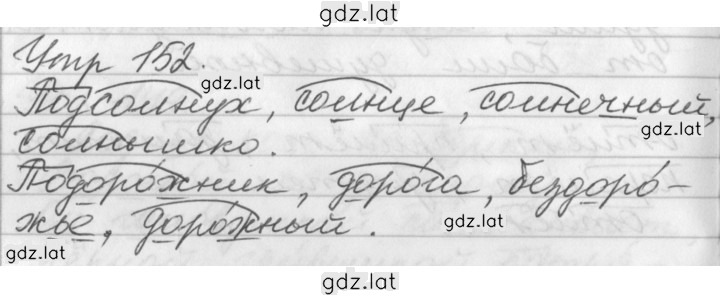 gdz.lat
Упр 152.
gdz.lat
Подсолнух, солнце, солнечный,
gdz.lat
солнышко.
Подоро́жник, доро́га, бездоро́-
жье, доро́жный.
gdz.lat
gdz.lat
gdz.lat